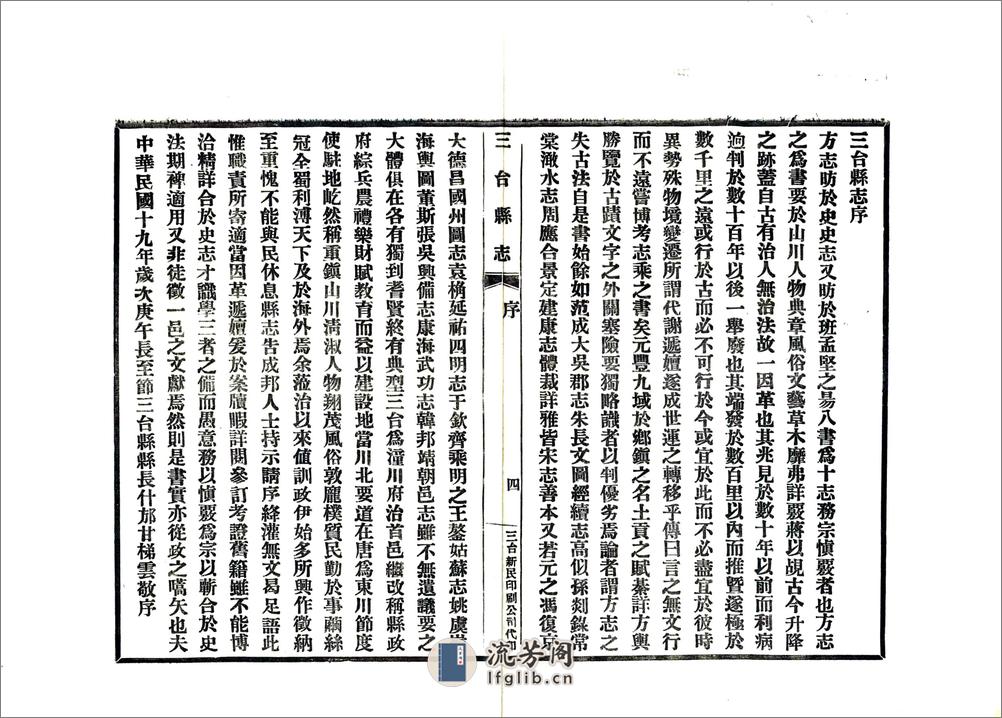 三台縣志序
方志昉於史史志又昉於班孟堅之易八書爲十志務宗慎覈者也方志
之爲書要於山川人物典章風俗文藝草木靡弗詳覈蔣以覘古今升降
之跡蓋自古有治人無治法故一因革也其兆見於數十年以前而利病
逈判於數十百年以後一舉廢也其端發於數百里以內而推曁遂極於
數千里之遠或行於古而必不可行於今或宜於此而不必盡宜於彼時
異勢殊物境變遷所謂代謝遞嬗遂成世運之轉移乎傳曰言之無文行
而不遠嘗博考志乘之書矣元豐九域於鄉鎭之名土貢之賦綦詳方輿
勝覽於古蹟文字之外關塞險要獨略識者以判優劣焉論者謂方志之
失古法自是書始餘如范成大吳郡志朱長文圖經續志高似孫剡錄常
棠澉水志周應合景定建康志體裁詳雅皆宋志善本又若元之馮復京
三台縣志 序 四 三台新民印刷公司代印
大德昌國州圖志袁桷延祐四明志于欽齊乘明之王鏊姑蘇志姚虞嶺
海輿圖董斯張吳興備志康海武功志韓邦靖朝邑志雖不無遺議要之
大體俱在各有獨到耆賢終有典型三台爲潼川府治首邑繼改稱縣政
府綜兵農禮樂財賦教育而益以建設地當川北要道在唐爲東川節度
使駐地屹然稱重鎭山川清淑人物翔茂風俗敦龐樸質民勤於事繭絲
冠全蜀利溥天下及於海外焉余涖治以來値訓政伊始多所興作徵納
至重愧不能與民休息縣志告成邦人士持示請序絳灌無文曷足語此
惟職責所寄適當因革遞嬗爰於案牘暇詳閱參訂考證舊籍雖不能博
洽精詳合於史志才識學三者之備而愚意務以慎覈爲宗以蘄合於史
法期稗適用又非徒徵一邑之文獻焉然則是書實亦從政之嚆矢也夫
中華民國十九年歲次庚午長至節三台縣縣長什邡甘梯雲敬序
流芳阁
lfglib.cn